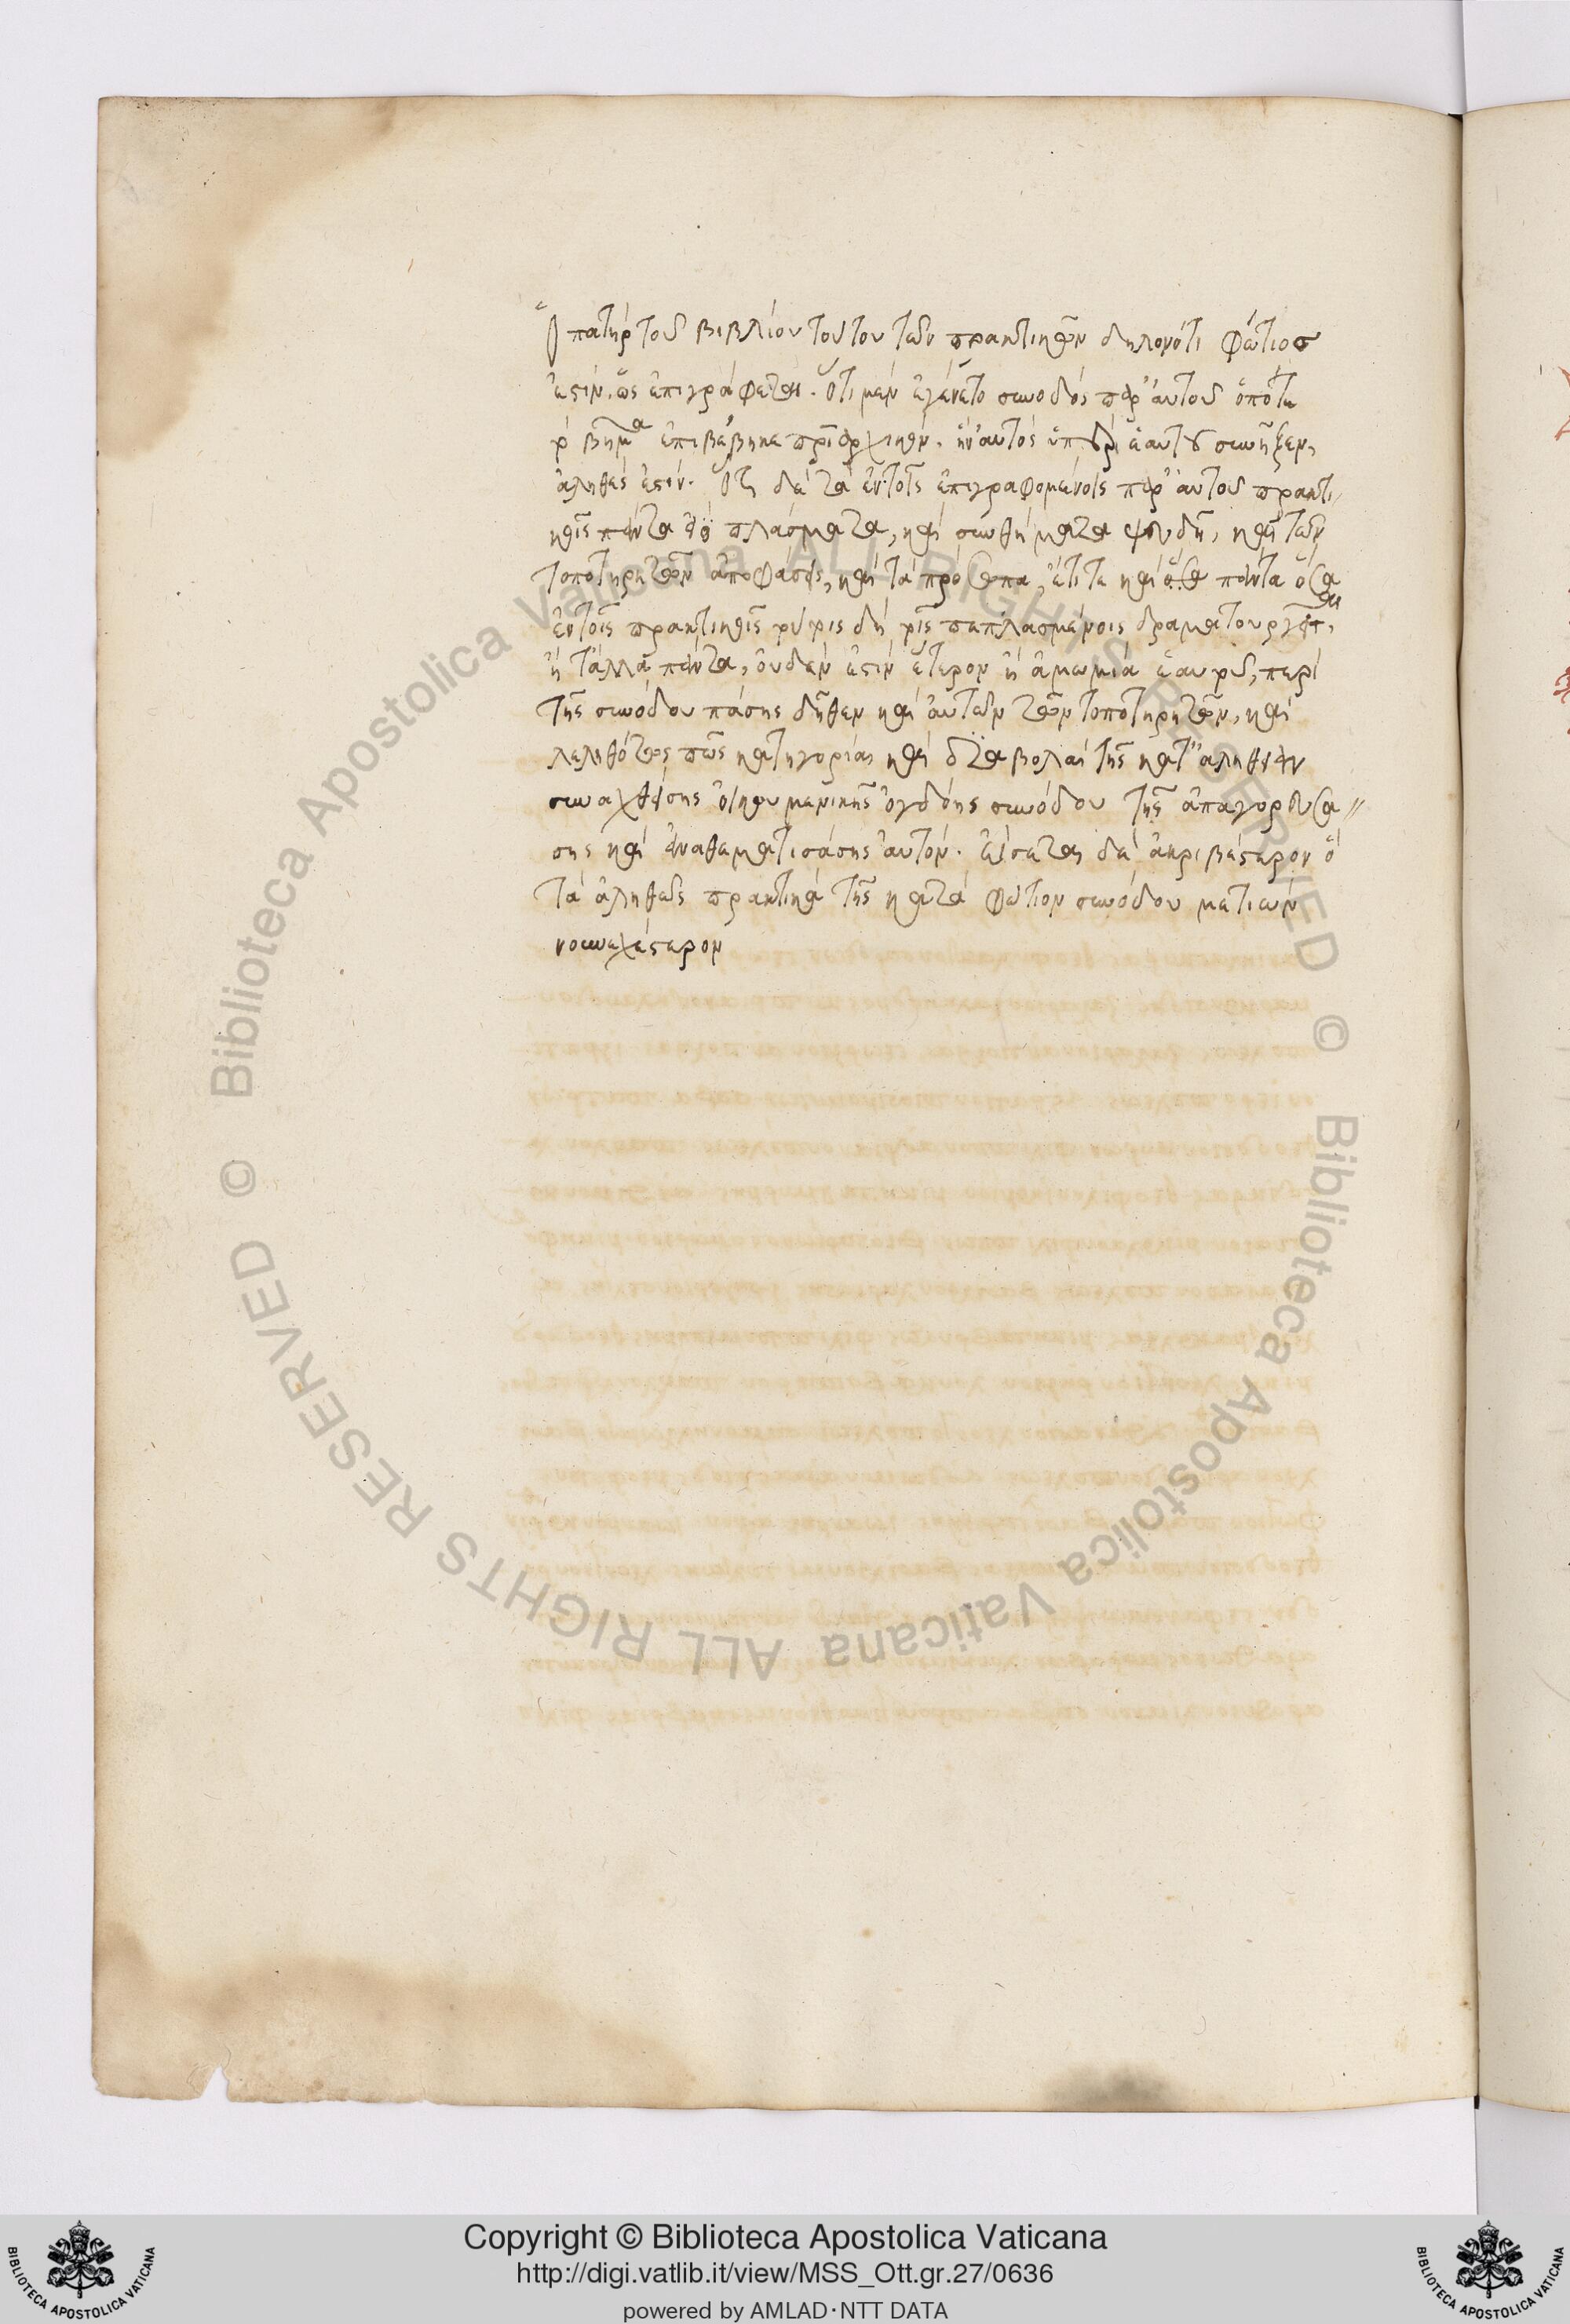 Ὁ πατὴρ τοῦ βιβλίου τούτου τῶν πρακτικῶν δηλονότι Φώτιος
ἐστὶν, ὡς ἐπιγράφεται. Ὅτι μὲν ἐγένετο σύνοδος παρ' αὐτοῦ ὁπότε
βῆμα ἐπιβέβηκε ἣν αὐτὸς ὑπὲρ ἑαυτοῦ συνῆξεν,
ἀληθές ἐστιν. Ὅτι δὲ τὰ ἐν τοῖς ἐπιγραφομένοις παρ' αὐτοῦ πρακτι-
κοῖς πάντα πλάσματα, καὶ συνθήματα ψευδῆ, καὶ τῶν
τοποτηρητῶν ἀποφάσεις, καὶ τὰ πρόσωπα, ἔτι τε καὶ πάντα ὅσα
ἐν τοῖς πρακτικοῖς πεπλασμένοις δραματουργεῖται,
ἢ τἄλλα πάντα, οὐδὲν ἐστὶν ἕτερον ἢ περὶ
τῆς συνόδου πάσης δῆθεν καὶ αὐτῶν τῶν τοποτηρητῶν, καὶ
λεληθότως πῶς κατηγορίαι καὶ διαβολαὶ τῆς κατ' ἀλήθειαν
συναχθείσης οἰκουμενικῆς ὀγδόης συνόδου τῆς ἀπαγορευσά-
σης καὶ ἀναθεματισάσης αὐτόν. εἴσεται δὲ ἀκριβέστερον ὁ
τὰ ἀληθῶς πρακτικὰ τῆς κατὰ Φώτιον συνόδου μετιὼν
νουνεχέστερον
Biblioteca Apostolica Vaticana ALL RIGHTS RESERVED ©
Biblioteca Apostolica Vaticana ALL RIGHTS RESERVED ©
Copyright © Biblioteca Apostolica Vaticana
http://digi.vatlib.it/view/MSS_Ott.gr.27/0636
powered by AMLAD·NTT DATA
BIBLIOTECA APOSTOLICA VATICANA
BIBLIOTECA APOSTOLICA VATICANA